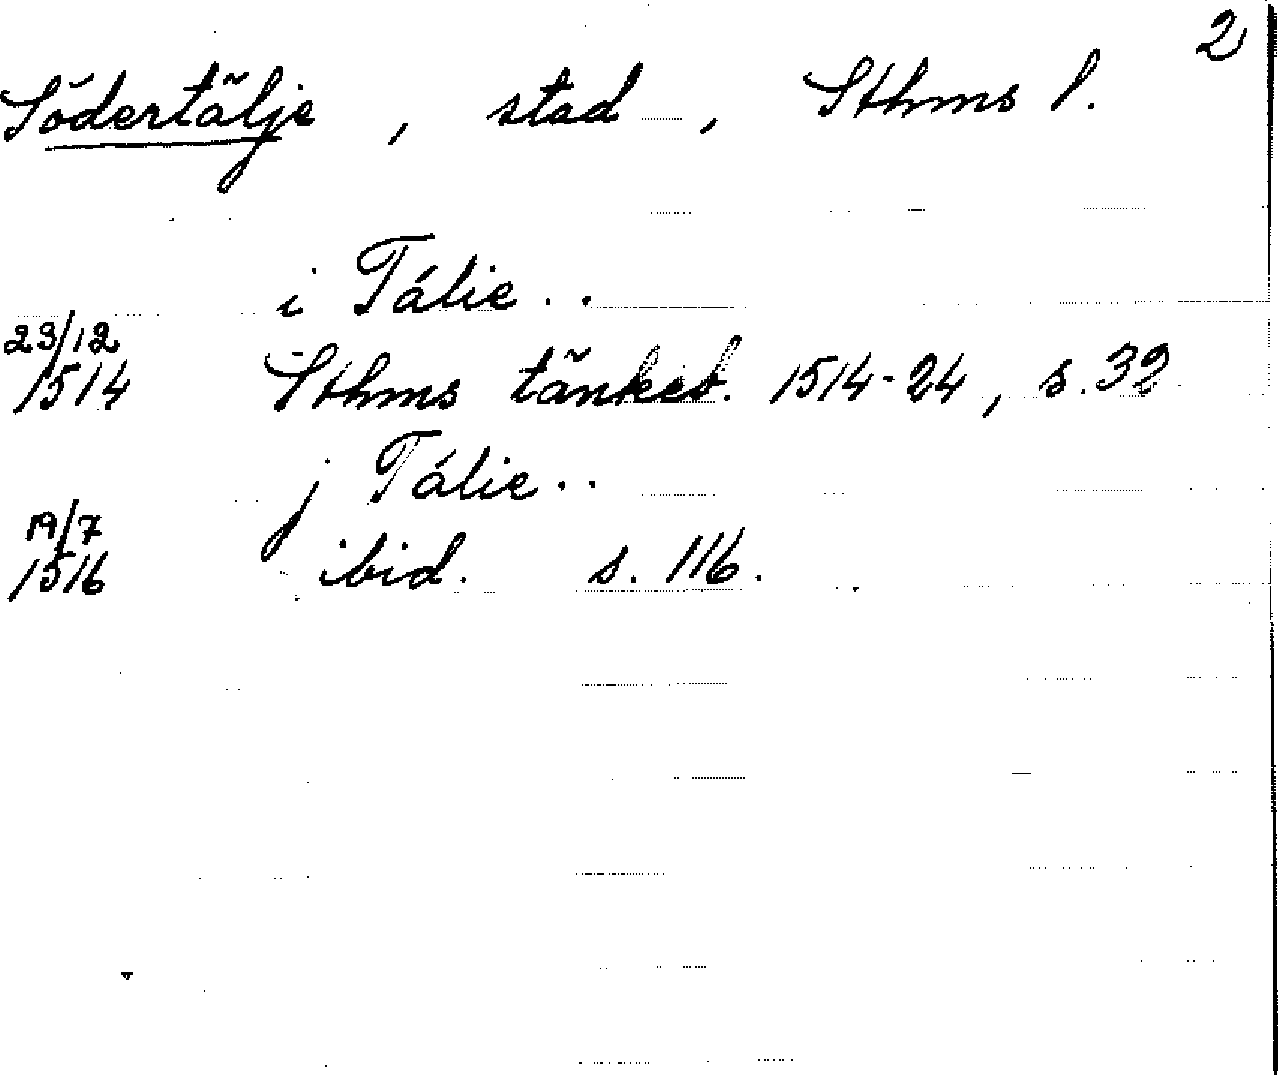 2
Södertälje, stad, Sthms l.
i Tálie..
23/12
1514 Sthms tänkeb. 1514-24, s. 32
j Tálie..
19/7
1516 ibid. s. 116.